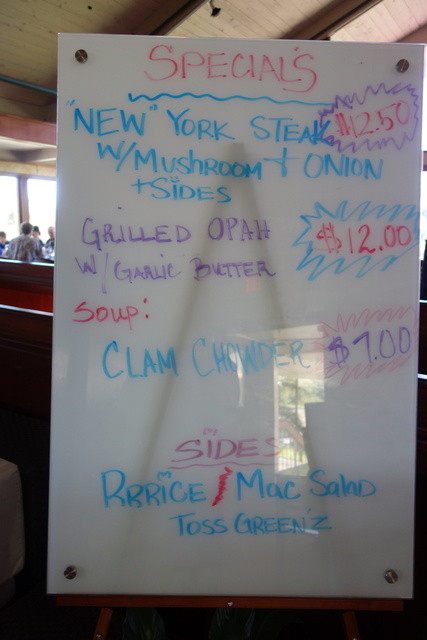 SPECIAL'S
"NEW" YORK STEAK $12.50
W/MUSHROOM + ONION
+ SIDES
GRILLED OPAH $12.00
W/ GARLIC BUTTER
SOUP:
CLAM CHOWDER $7.00
SIDES
RRRICE / MAC SALAD
TOSS GREEN'Z